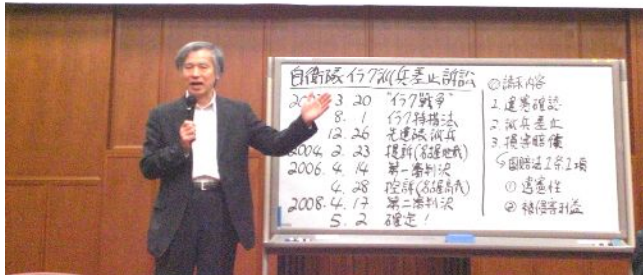 自衛隊イラク派兵差止訴訟
3. 20 "イラク戦争"
8. 1 イラク特措法
12. 26 先遣隊派兵
2004. 2. 23 提訴(名古屋地裁)
2006. 4. 14 第一審判決
4. 28 控訴(名古屋高裁)
2008. 4. 17 第二審判決
5. 2 確定!
◎請求内容
1. 違憲確認
2. 派兵差止
3. 損害賠償
↳国賠法1条1項
① 違憲性
② 被侵害利益